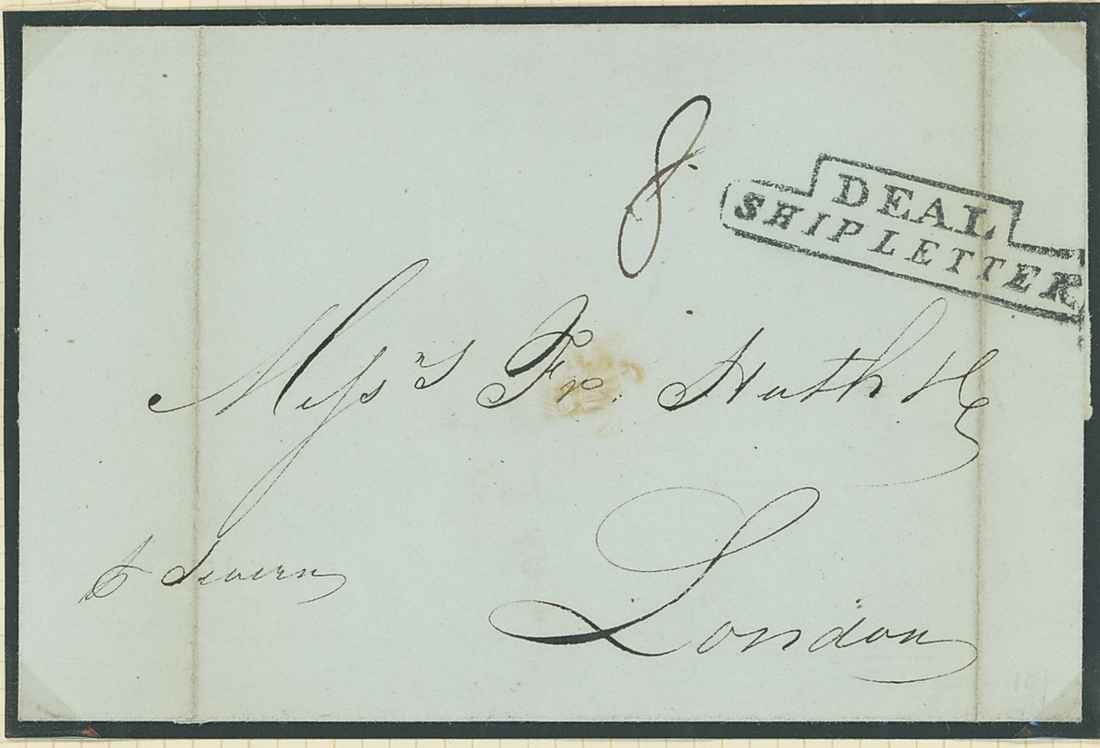 8
DEAL
SHIP LETTER
Messrs Fr. Huth & Co
p Severn
London